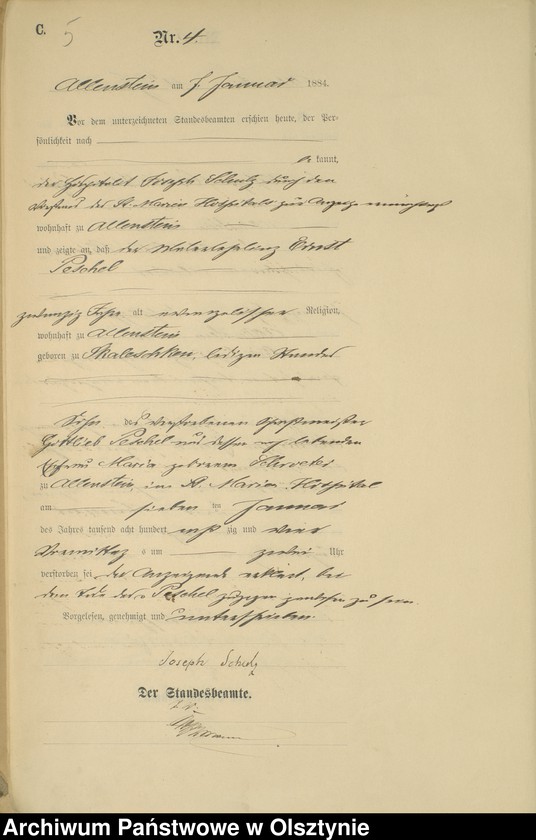 C. 5
Nr. 4.
Allenstein am 7. Januar 1884.
Vor dem unterzeichneten Standesbeamten erschien heute, der Per-
sönlichkeit nach
kannt,
der Hospitalit Joseph Schulz durch den
Vorstand des St. Marien Hospitals zur Anzeige ermächtigt
wohnhaft zu Allenstein
und zeigte an, daß der Ernst
Peschel
zwanzig Jahre alt evangelischer Religion,
wohnhaft zu Allenstein
geboren zu Skaleschken, ledigen Standes
Sohn des verstorbenen
Gottlieb Peschel und dessen noch lebenden
Ehefrau Maria geborenen
zu Allenstein, im St. Marien Hospital
am sieben ten Januar
des Jahrs tausend acht hundert achtzig und vier
Vormittags um zwei Uhr
verstorben sei, der Anzeigende erklärt, bei
dem Tode des Peschel zugegen gewesen zu sein.
Vorgelesen, genehmigt und unterschrieben.
Joseph Schulz
Der Standesbeamte.
Archiwum Państwowe w Olsztynie